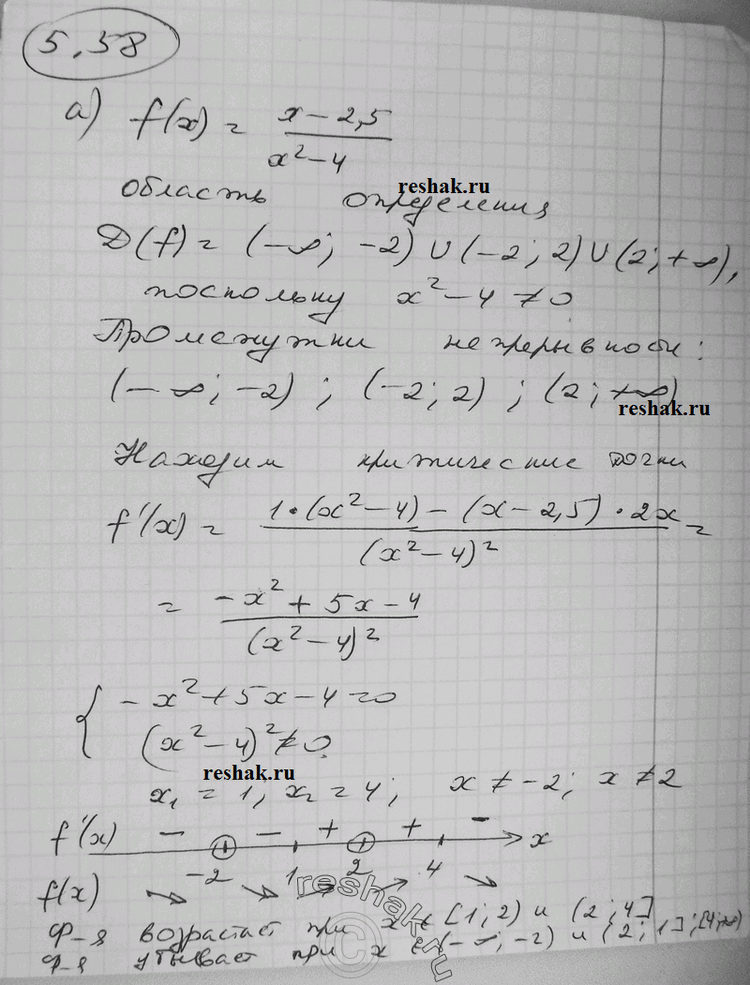 5.58
а) f(x) = (x - 2,5)/(x² - 4)
reshak.ru
область определения
D(f) = (-∞; -2) ∪ (-2; 2) ∪ (2; +∞),
поскольку x² - 4 ≠ 0
Промежутки непрерывности:
(-∞; -2) ; (-2; 2) ; (2; +∞)
reshak.ru
Находим критические точки
f'(x) = (1·(x² - 4) - (x - 2,5)·2x)/(x² - 4)² =
= (-x² + 5x - 4)/(x² - 4)²
{ -x² + 5x - 4 = 0
(x² - 4)² ≠ 0
reshak.ru
x₁ = 1; x₂ = 4; x ≠ -2; x ≠ 2
f'(x) - - + + - x
-2 1 2 4
f(x) ↘ ↘ ↗ ↗ ↘
reshak.ru
ф-я возрастает при x ∈ [1; 2) и (2; 4]
ф-я убывает при x ∈ (-∞; -2) и (2; 1]; [4; +∞)